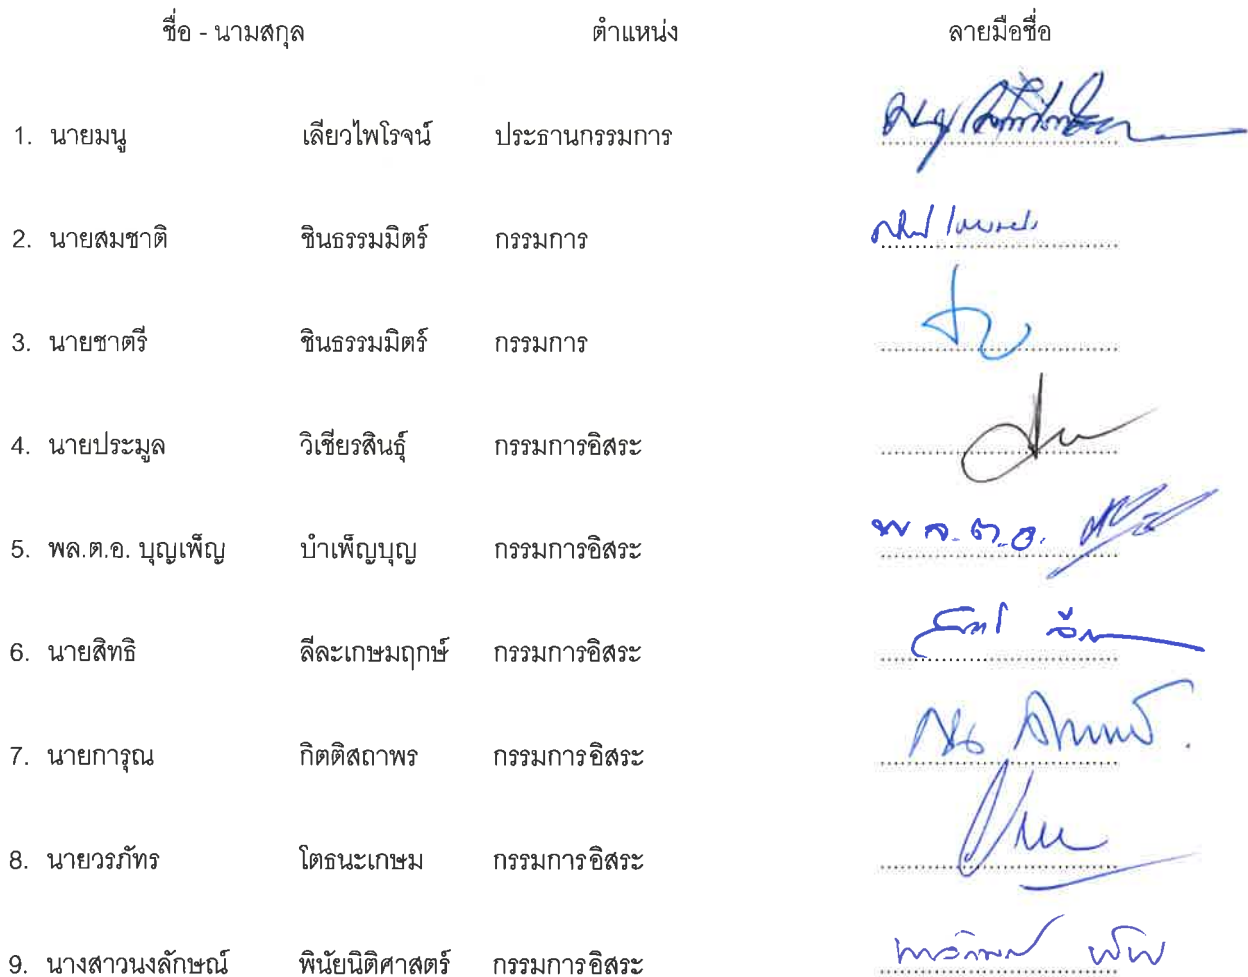 ชื่อ - นามสกุล ตำแหน่ง ลายมือชื่อ
1. นายมนู เลียวไพโรจน์ ประธานกรรมการ
2. นายสมชาติ ชินธรรมมิตร์ กรรมการ
3. นายชาตรี ชินธรรมมิตร์ กรรมการ
4. นายประมูล วิเชียรสินธุ์ กรรมการอิสระ
5. พล.ต.อ. บุญเพ็ญ บำเพ็ญบุญ กรรมการอิสระ พล.ต.อ.
6. นายสิทธิ ลีละเกษมฤกษ์ กรรมการอิสระ
7. นายการุณ กิตติสถาพร กรรมการอิสระ
8. นายวรภัทร โตธนะเกษม กรรมการอิสระ
9. นางสาวนงลักษณ์ พินัยนิติศาสตร์ กรรมการอิสระ